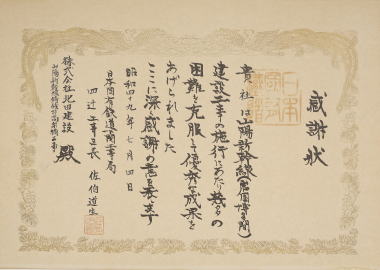 感謝状
株式会社 地田建設
殿
貴社は山陽新幹線
建設工事の施行にあたり数多の
困難を克服して優秀な成果を
あげられました
ここに深く感謝の意を表します
昭和四十九年七月四日
日本国有鉄道 工事局
工事区長 佐伯道生